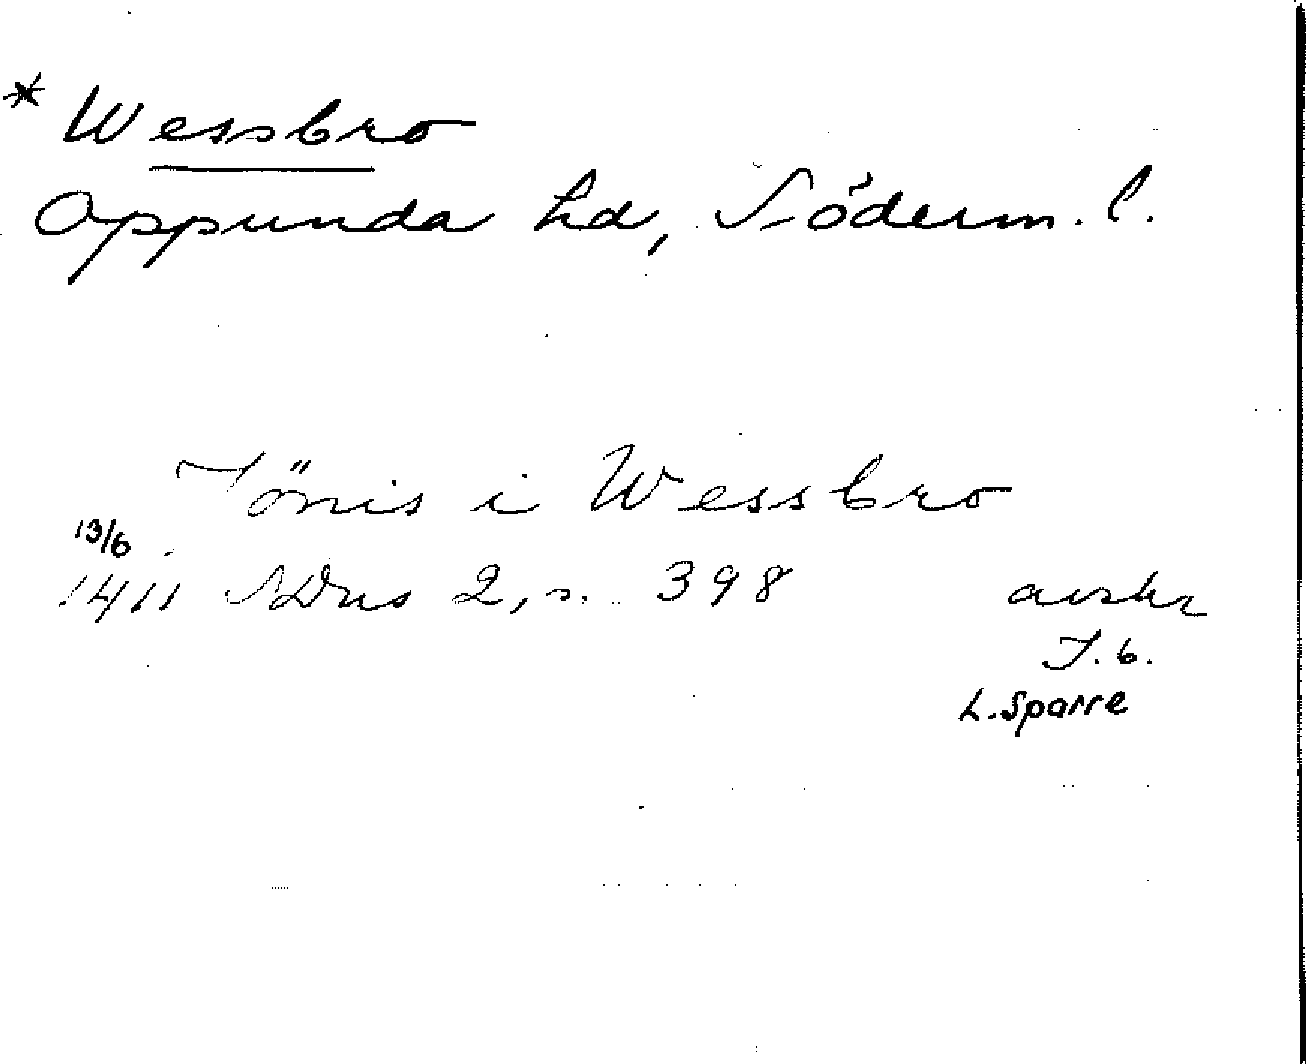 * Wessbro
Oppunda hd, Söderm. l.
Jönis i Wessbro
13/6
1411 SDns 2, s. 398 avskr
J. b.
L. Sparre